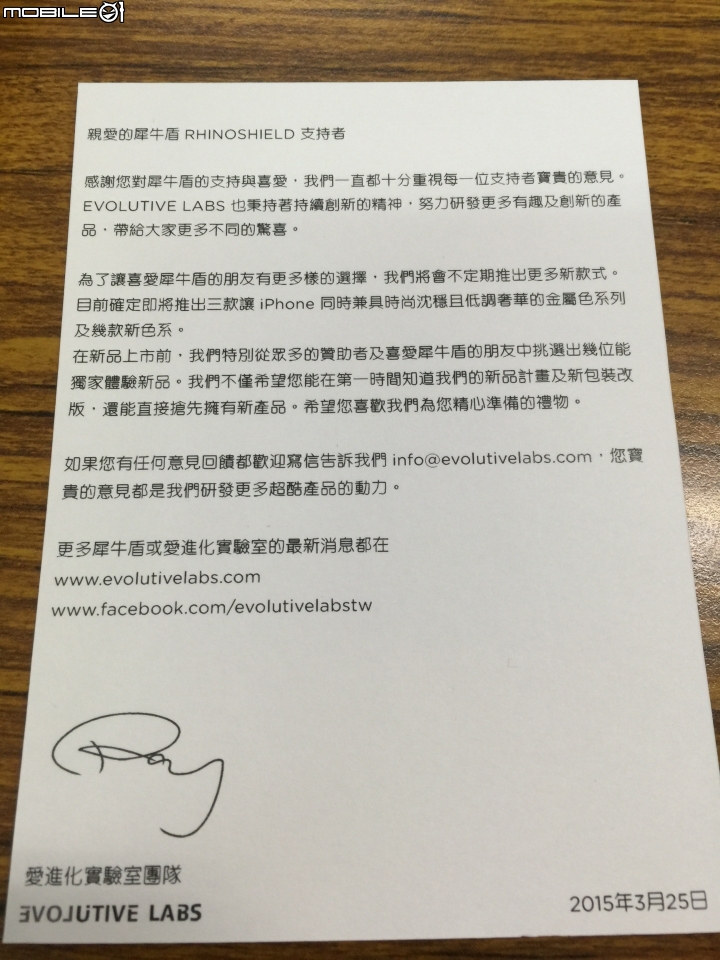 MOBILE01
親愛的犀牛盾 RHINOSHIELD 支持者
感謝您對犀牛盾的支持與喜愛，我們一直都十分重視每一位支持者寶貴的意見。
EVOLUTIVE LABS 也秉持著持續創新的精神，努力研發更多有趣及創新的產
品，帶給大家更多不同的驚喜。
為了讓喜愛犀牛盾的朋友有更多樣的選擇，我們將會不定期推出更多新款式。
目前確定即將推出三款讓 iPhone 同時兼具時尚沈穩且低調奢華的金屬色系列
及幾款新色系。
在新品上市前，我們特別從眾多的贊助者及喜愛犀牛盾的朋友中挑選出幾位能
獨家體驗新品。我們不僅希望您能在第一時間知道我們的新品計畫及新包裝改
版，還能直接搶先擁有新產品。希望您喜歡我們為您精心準備的禮物。
如果您有任何意見回饋都歡迎寫信告訴我們 info@evolutivelabs.com，您寶
貴的意見都是我們研發更多超酷產品的動力。
更多犀牛盾或愛進化實驗室的最新消息都在
www.evolutivelabs.com
www.facebook.com/evolutivelabstw
Ray
愛進化實驗室團隊
EVOLUTIVE LABS
2015年3月25日